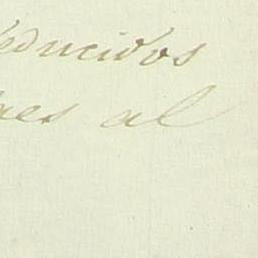 educidos
es al